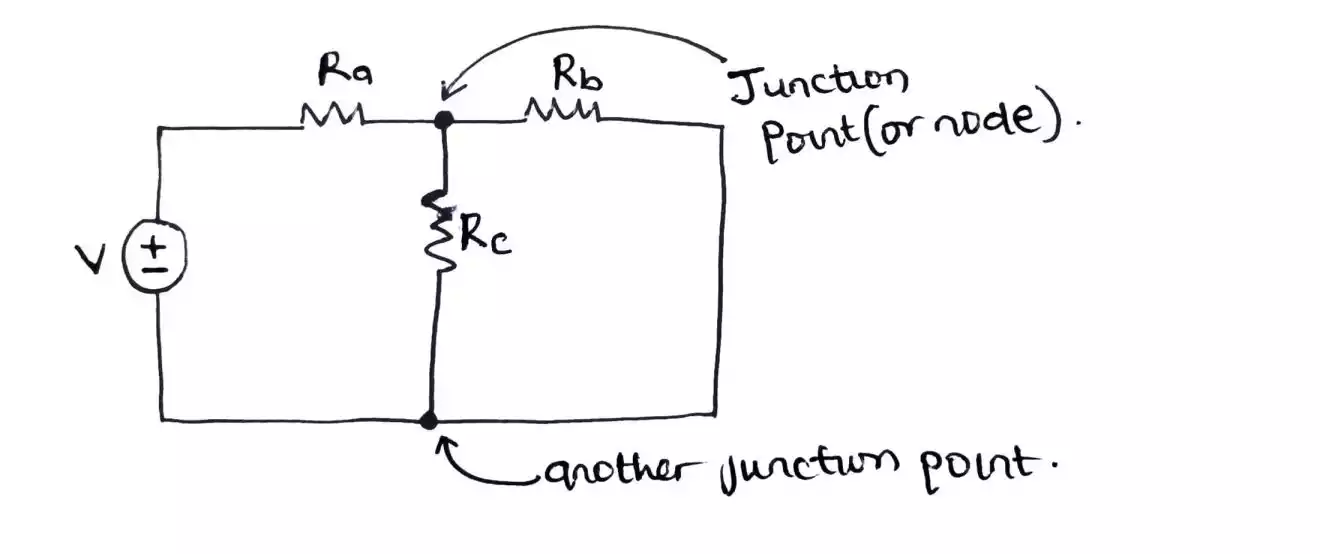 Ra
Rb
Junction
Point (or node).
Rc
V
+
−
another junction point.